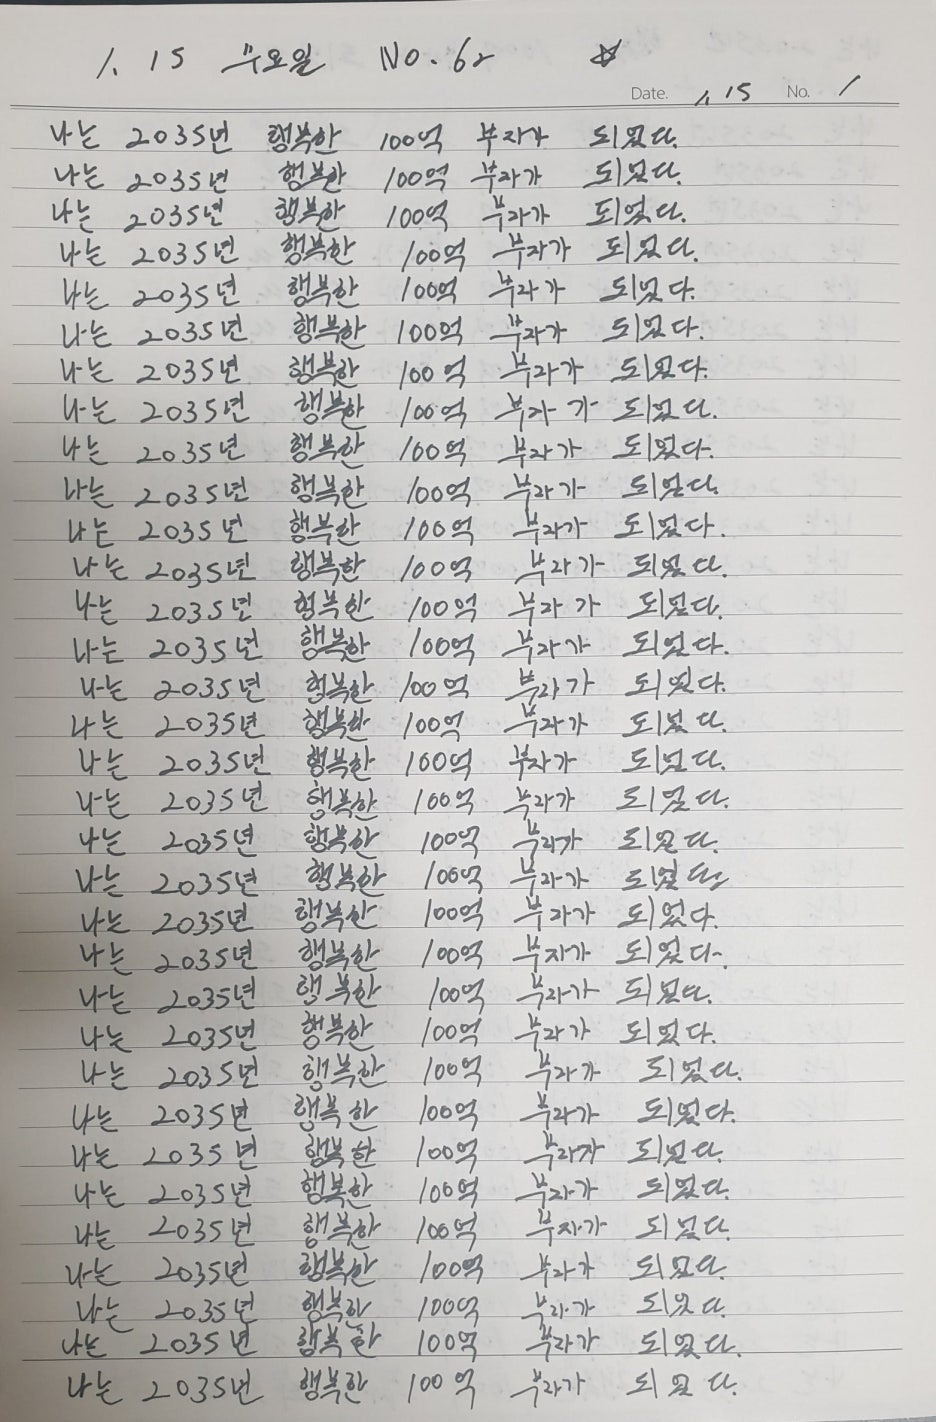 1. 15 수요일 NO. 62 ☆
Date. 1. 15 No. 1
나는 2035년 행복한 100억 부자가 되었다.
나는 2035년 행복한 100억 부자가 되었다.
나는 2035년 행복한 100억 부자가 되었다.
나는 2035년 행복한 100억 부자가 되었다.
나는 2035년 행복한 100억 부자가 되었다.
나는 2035년 행복한 100억 부자가 되었다.
나는 2035년 행복한 100억 부자가 되었다.
나는 2035년 행복한 100억 부자가 되었다.
나는 2035년 행복한 100억 부자가 되었다.
나는 2035년 행복한 100억 부자가 되었다.
나는 2035년 행복한 100억 부자가 되었다.
나는 2035년 행복한 100억 부자가 되었다.
나는 2035년 행복한 100억 부자가 되었다.
나는 2035년 행복한 100억 부자가 되었다.
나는 2035년 행복한 100억 부자가 되었다.
나는 2035년 행복한 100억 부자가 되었다.
나는 2035년 행복한 100억 부자가 되었다.
나는 2035년 행복한 100억 부자가 되었다.
나는 2035년 행복한 100억 부자가 되었다.
나는 2035년 행복한 100억 부자가 되었다.
나는 2035년 행복한 100억 부자가 되었다.
나는 2035년 행복한 100억 부자가 되었다.
나는 2035년 행복한 100억 부자가 되었다.
나는 2035년 행복한 100억 부자가 되었다.
나는 2035년 행복한 100억 부자가 되었다.
나는 2035년 행복한 100억 부자가 되었다.
나는 2035년 행복한 100억 부자자 되었다.
나는 2035년 행복한 100억 부자가 되었다.
나는 2035년 행복한 100억 부자가 되었다.
나는 2035년 행복한 100억 부자가 되었다.
나는 2035년 행복한 100억 부자가 되었다.
나는 2035년 행복한 100억 부자가 되었다.
나는 2035년 행복한 100억 부자가 되었다.